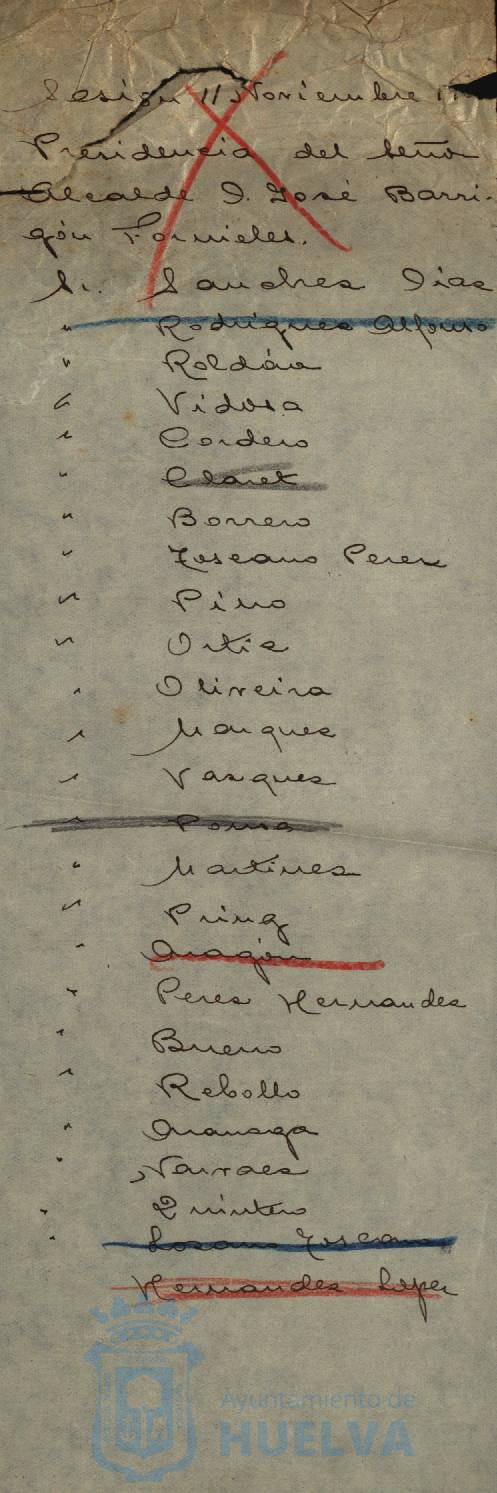 Sesión 11 Noviembre
Presidencia del Señor
Alcalde D. José Barri-
gón Fornieles.
Sr. Sanches Dias
" Rodrigues Alfonso
" Roldán
" Vidosa
" Cordero
" Claret
" Borrero
" Toscano Peres
" Pino
" Ortis
" Oliveira
" Marques
" Vasques
" Poma
" Martines
" Pring
" Aragón
" Peres Hernandes
" Bueno
" Rebollo
" Aranaga
" Narvaes
" Quintero
" Losano Toscano
Hernandes Lopes
Ayuntamiento de
HUELVA